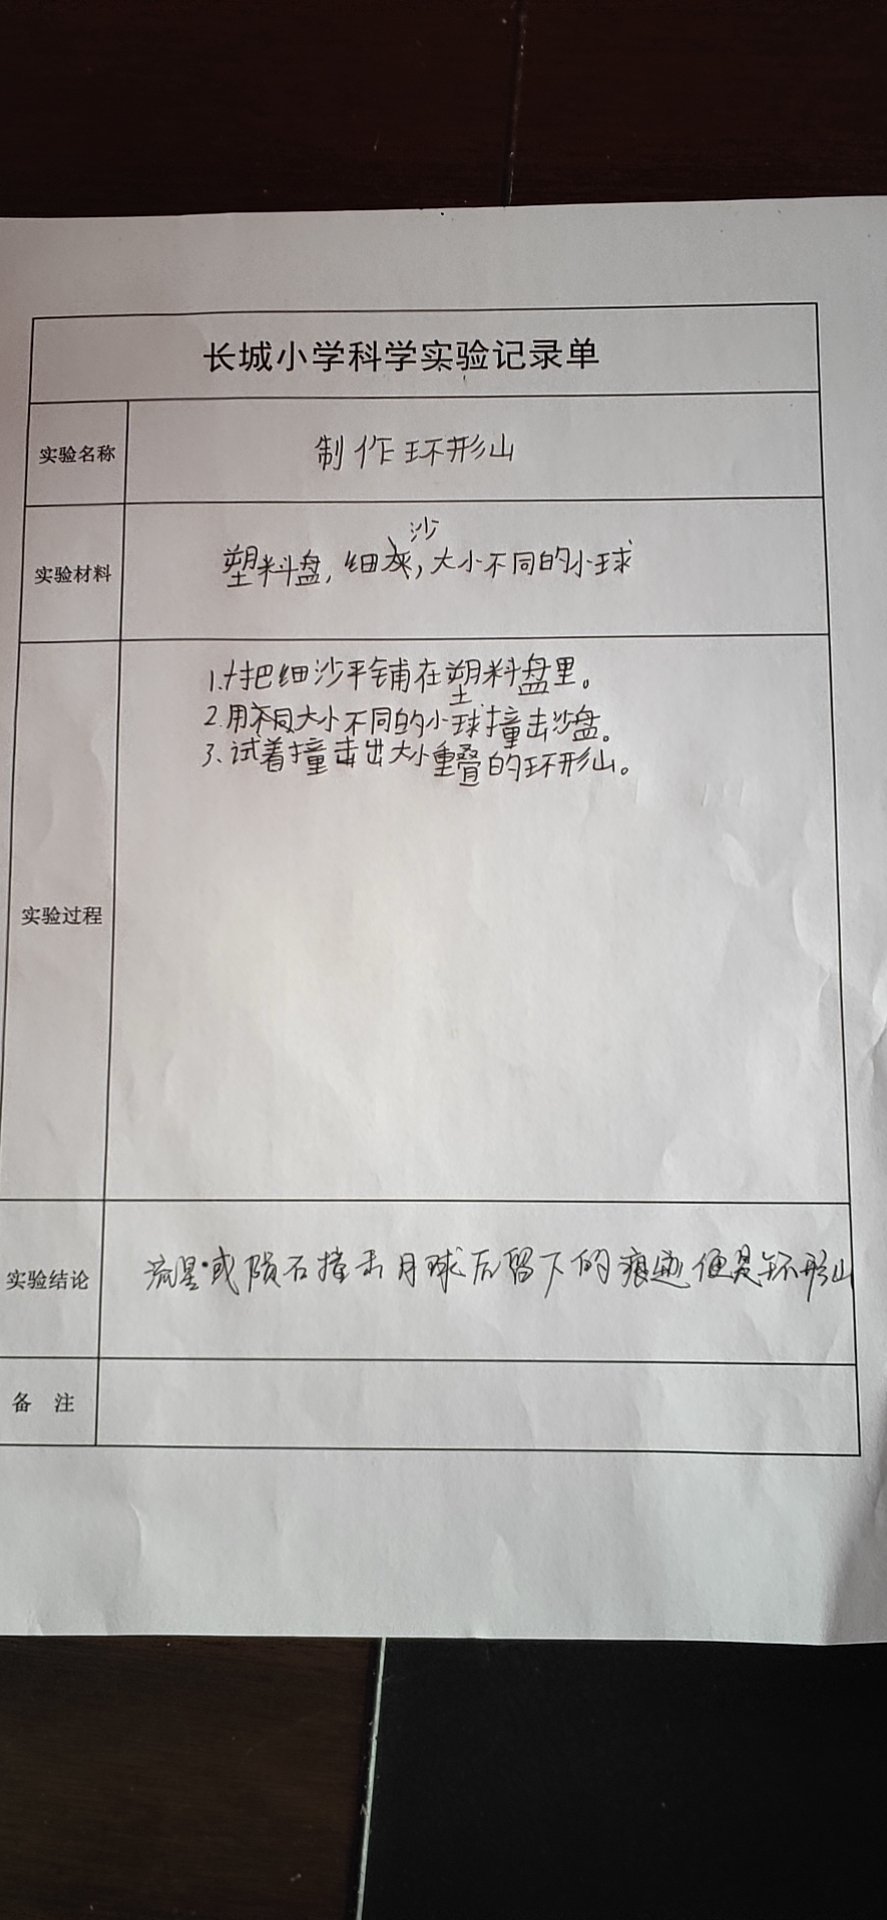 长城小学科学实验记录单
实验名称
制作环形山
实验材料
沙
塑料盘，细灰，大小不同的小球
实验过程
1.把细沙平铺在塑料盘里。
2.用大小不同的小球撞击沙盘。
3、试着撞击出大小重叠的环形山。
实验结论
流星或陨石撞击月球后留下的痕迹便是环形山
备 注